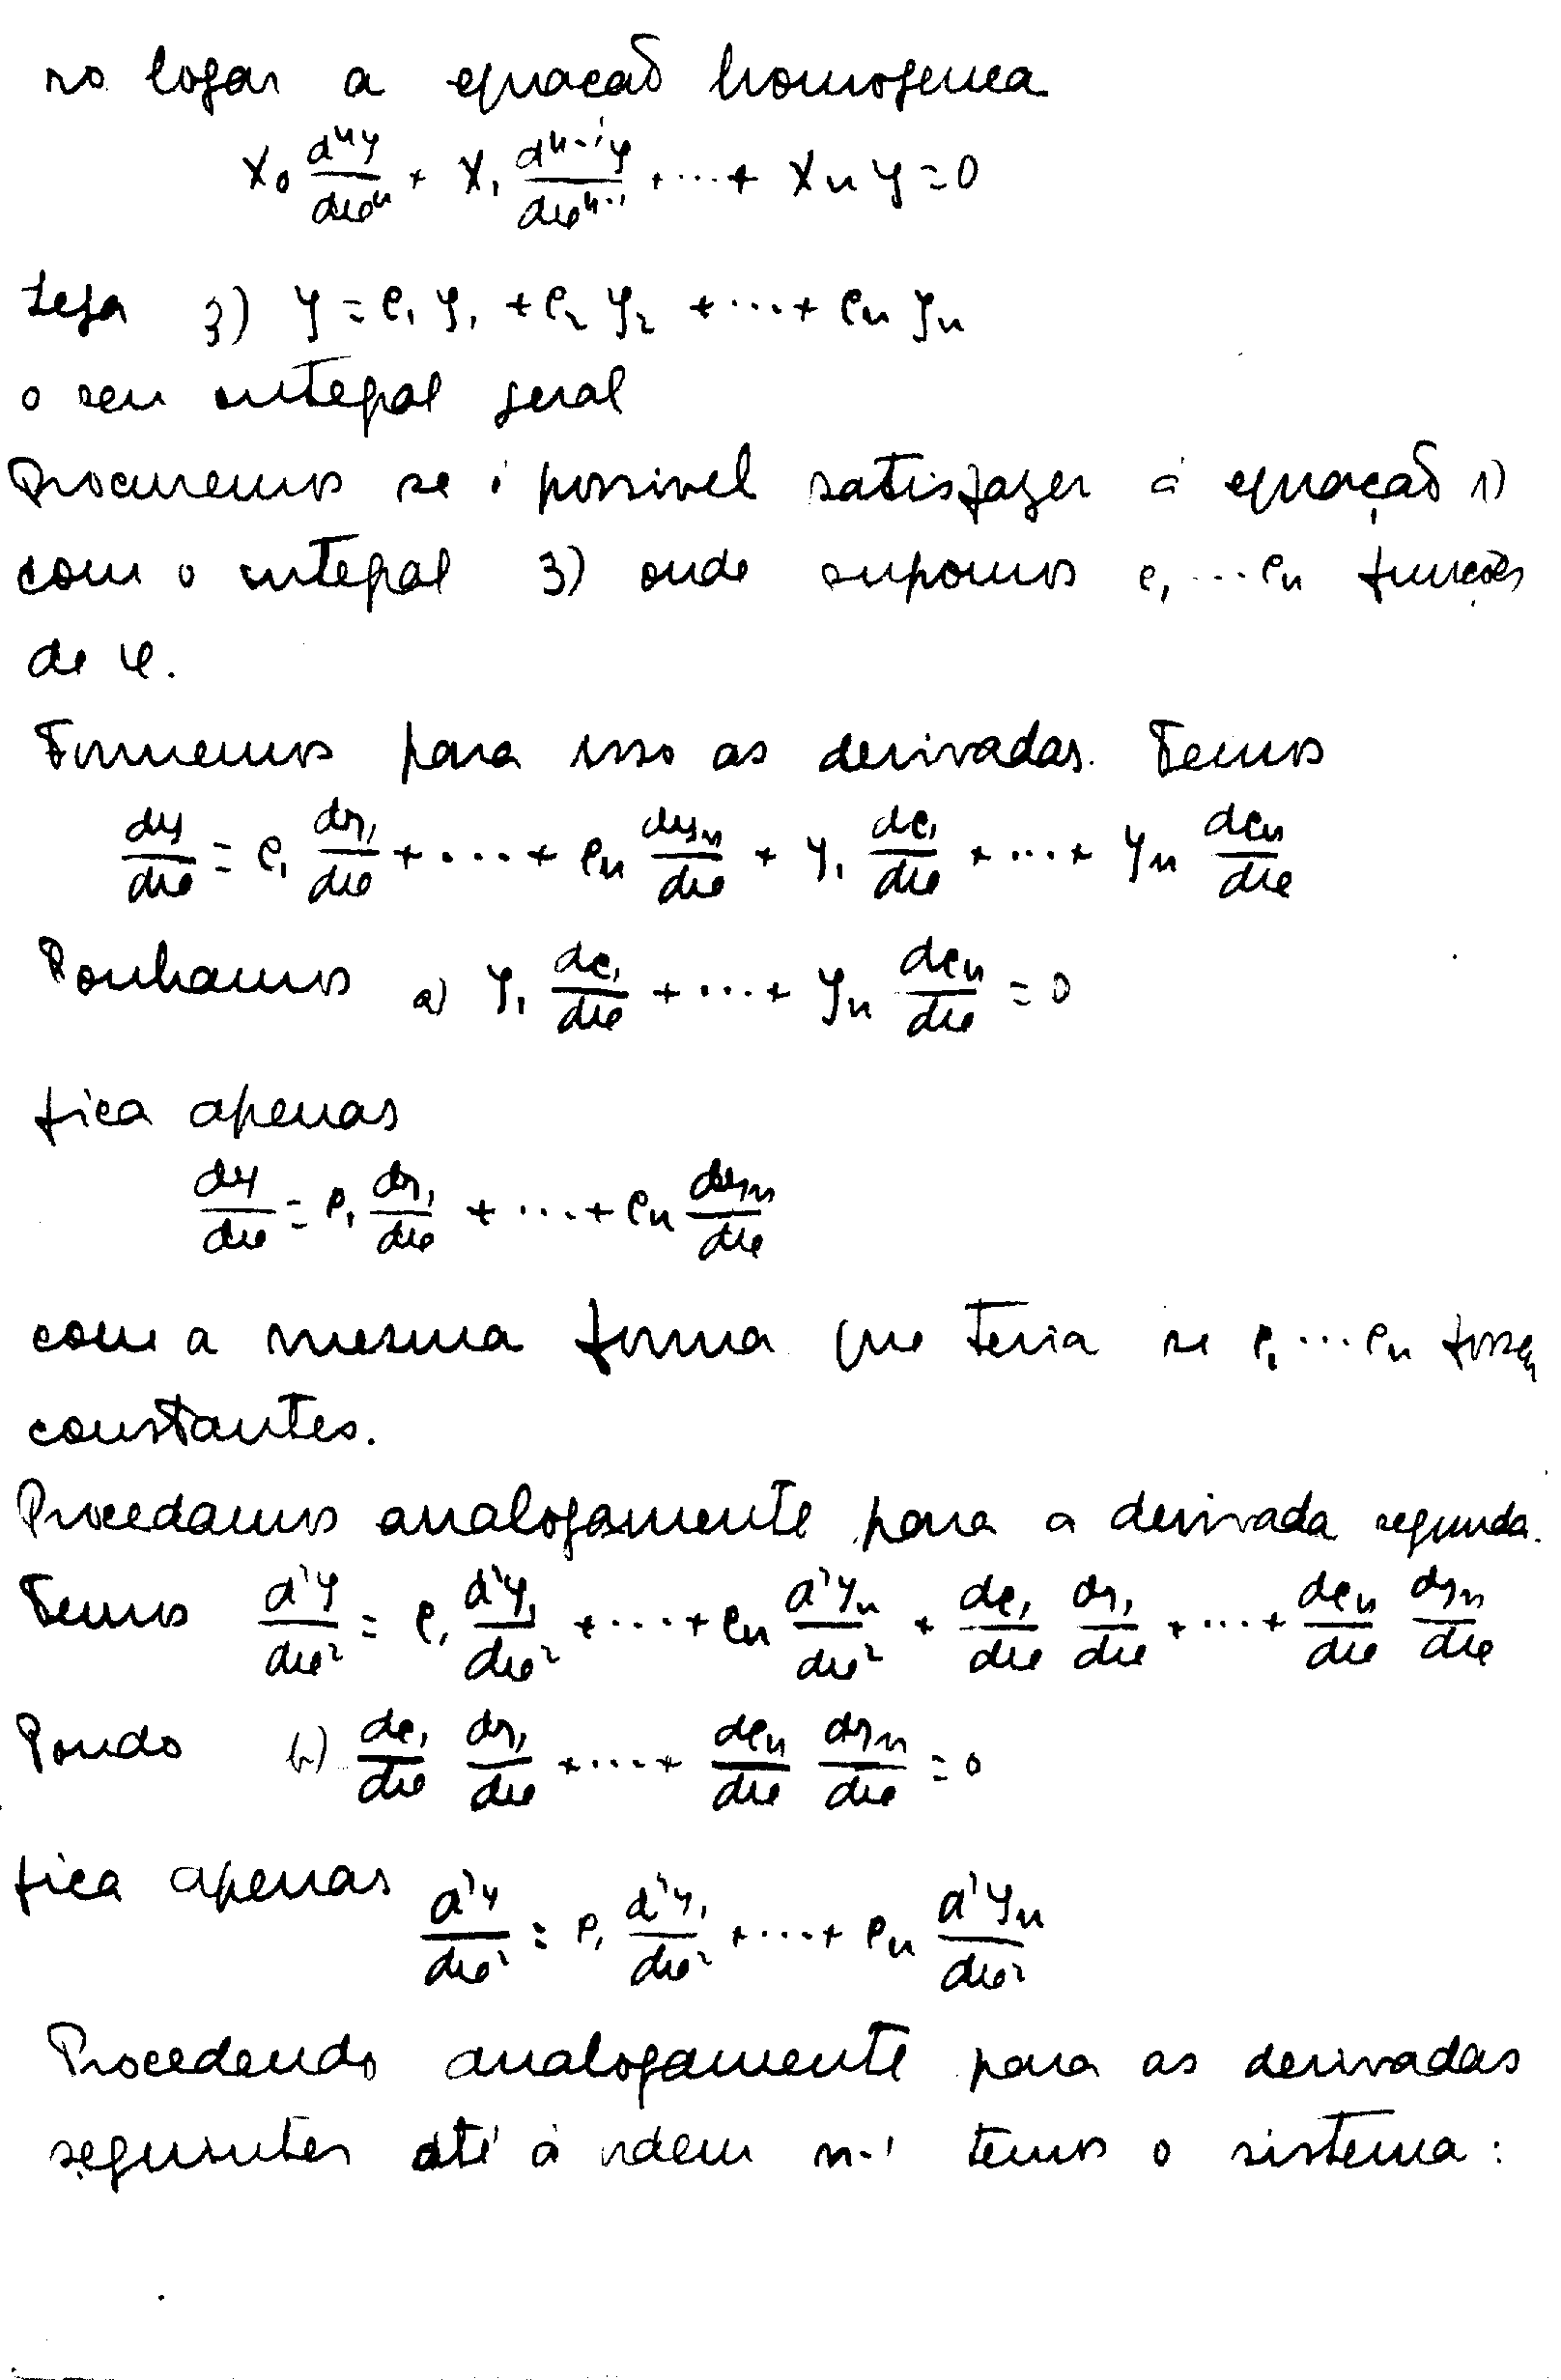 no logar a equação homogenea
X₀ dⁿy/dφⁿ + X₁ dⁿ⁻¹y/dφⁿ⁻¹ + ... + Xn y = 0
seja 3) y = c₁ y₁ + c₂ y₂ + ... + cn yn
o seu integral geral
Procuremos se é possivel satisfazer á equação 1)
com o integral 3) onde supomos c₁ ... cn funções
de φ.
Formemos para isso as derivadas. Temos
dy/dφ = c₁ dy₁/dφ + ... + cn dyn/dφ + y₁ dc₁/dφ + ... + yn dcn/dφ
Ponhamos a) y₁ dc₁/dφ + ... + yn dcn/dφ = 0
fica apenas
dy/dφ = c₁ dy₁/dφ + ... + cn dyn/dφ
com a mesma forma que teria se c₁ ... cn fossem
constantes.
Procedamos analogamente para a derivada segunda.
Temos d²y/dφ² = c₁ d²y₁/dφ² + ... + cn d²yn/dφ² + dc₁/dφ dy₁/dφ + ... + dcn/dφ dyn/dφ
Pondo b) dc₁/dφ dy₁/dφ + ... + dcn/dφ dyn/dφ = 0
fica apenas d²y/dφ² = c₁ d²y₁/dφ² + ... + cn d²yn/dφ²
Procedendo analogamente para as derivadas
seguintes até á ordem n-1 temos o sistema: